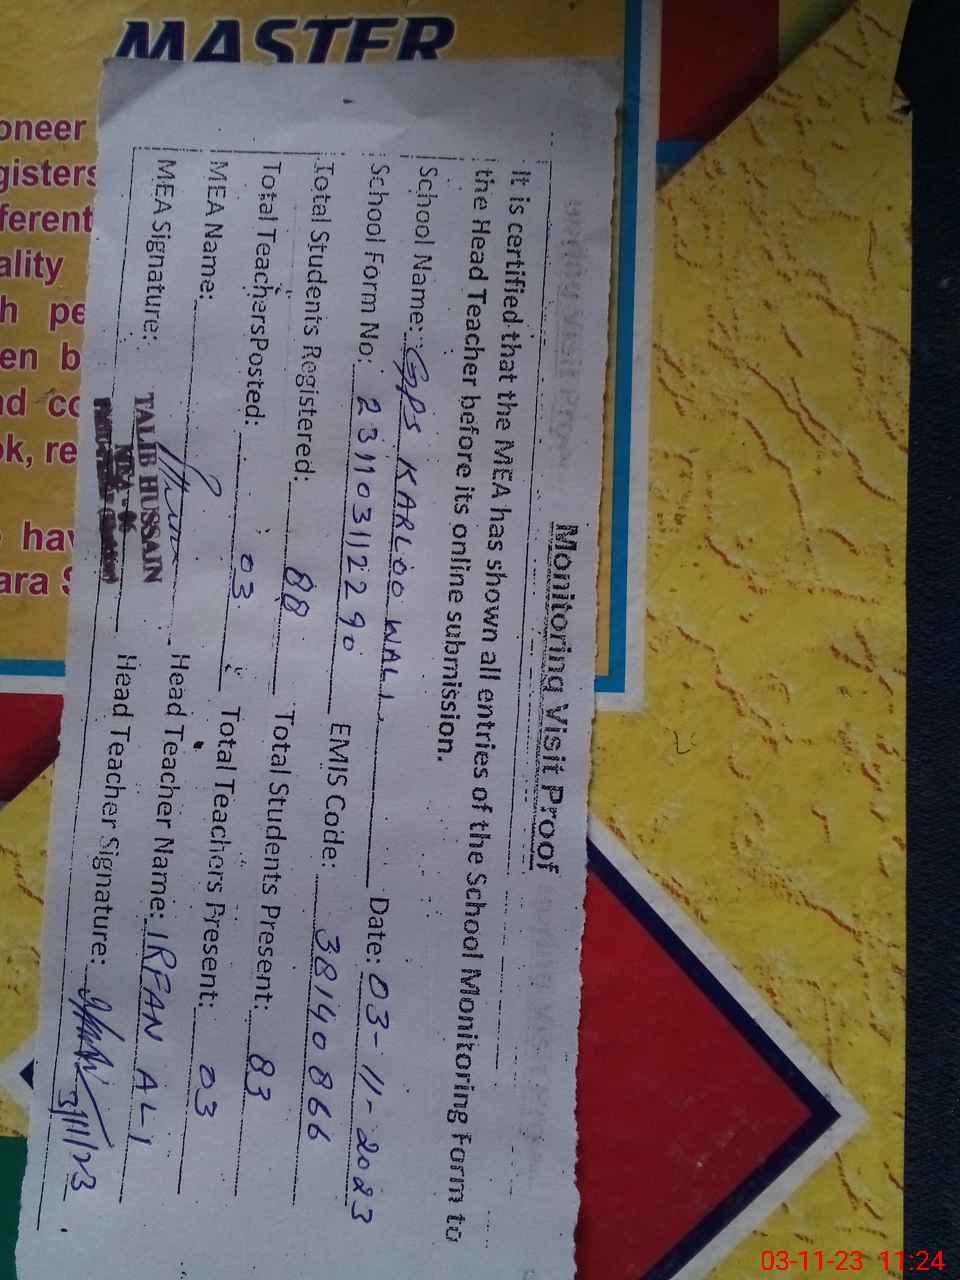 MASTER
oneer
gisters
ferent
ality
h pe
en b
nd co
ok, re
hav
ara S
Monitoring Visit Proof
It is certified that the MEA has shown all entries of the School Monitoring Form to
the Head Teacher before its online submission.
School Name: GPS KARLOO WALI Date: 03-11-2023
School Form No: 231103112290 EMIS Code: 38140866
Total Students Registered: 88 Total Students Present: 83
Total Teachers Posted: 03 Total Teachers Present: 03
MEA Name: Head Teacher Name: IRFAN ALI
MEA Signature: TALIB HUSSAIN Head Teacher Signature: 3/11/23
03-11-23 11:24